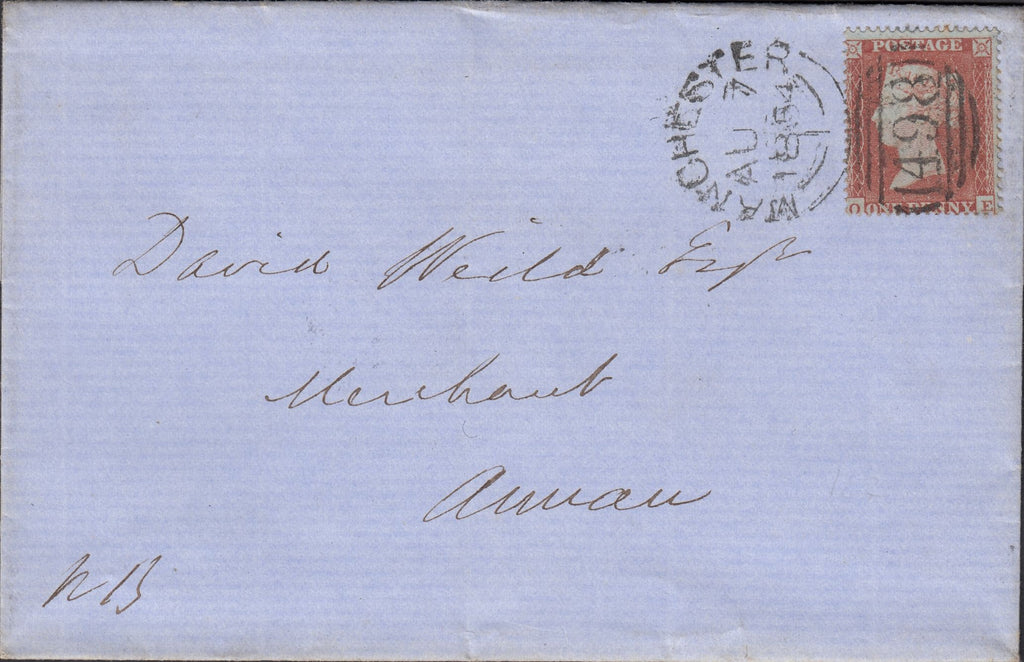 MANCHESTER
AU 7
1854
POSTAGE
498
O ONE PENNY E
David Weild Esqr
Merchant
Annan
NB